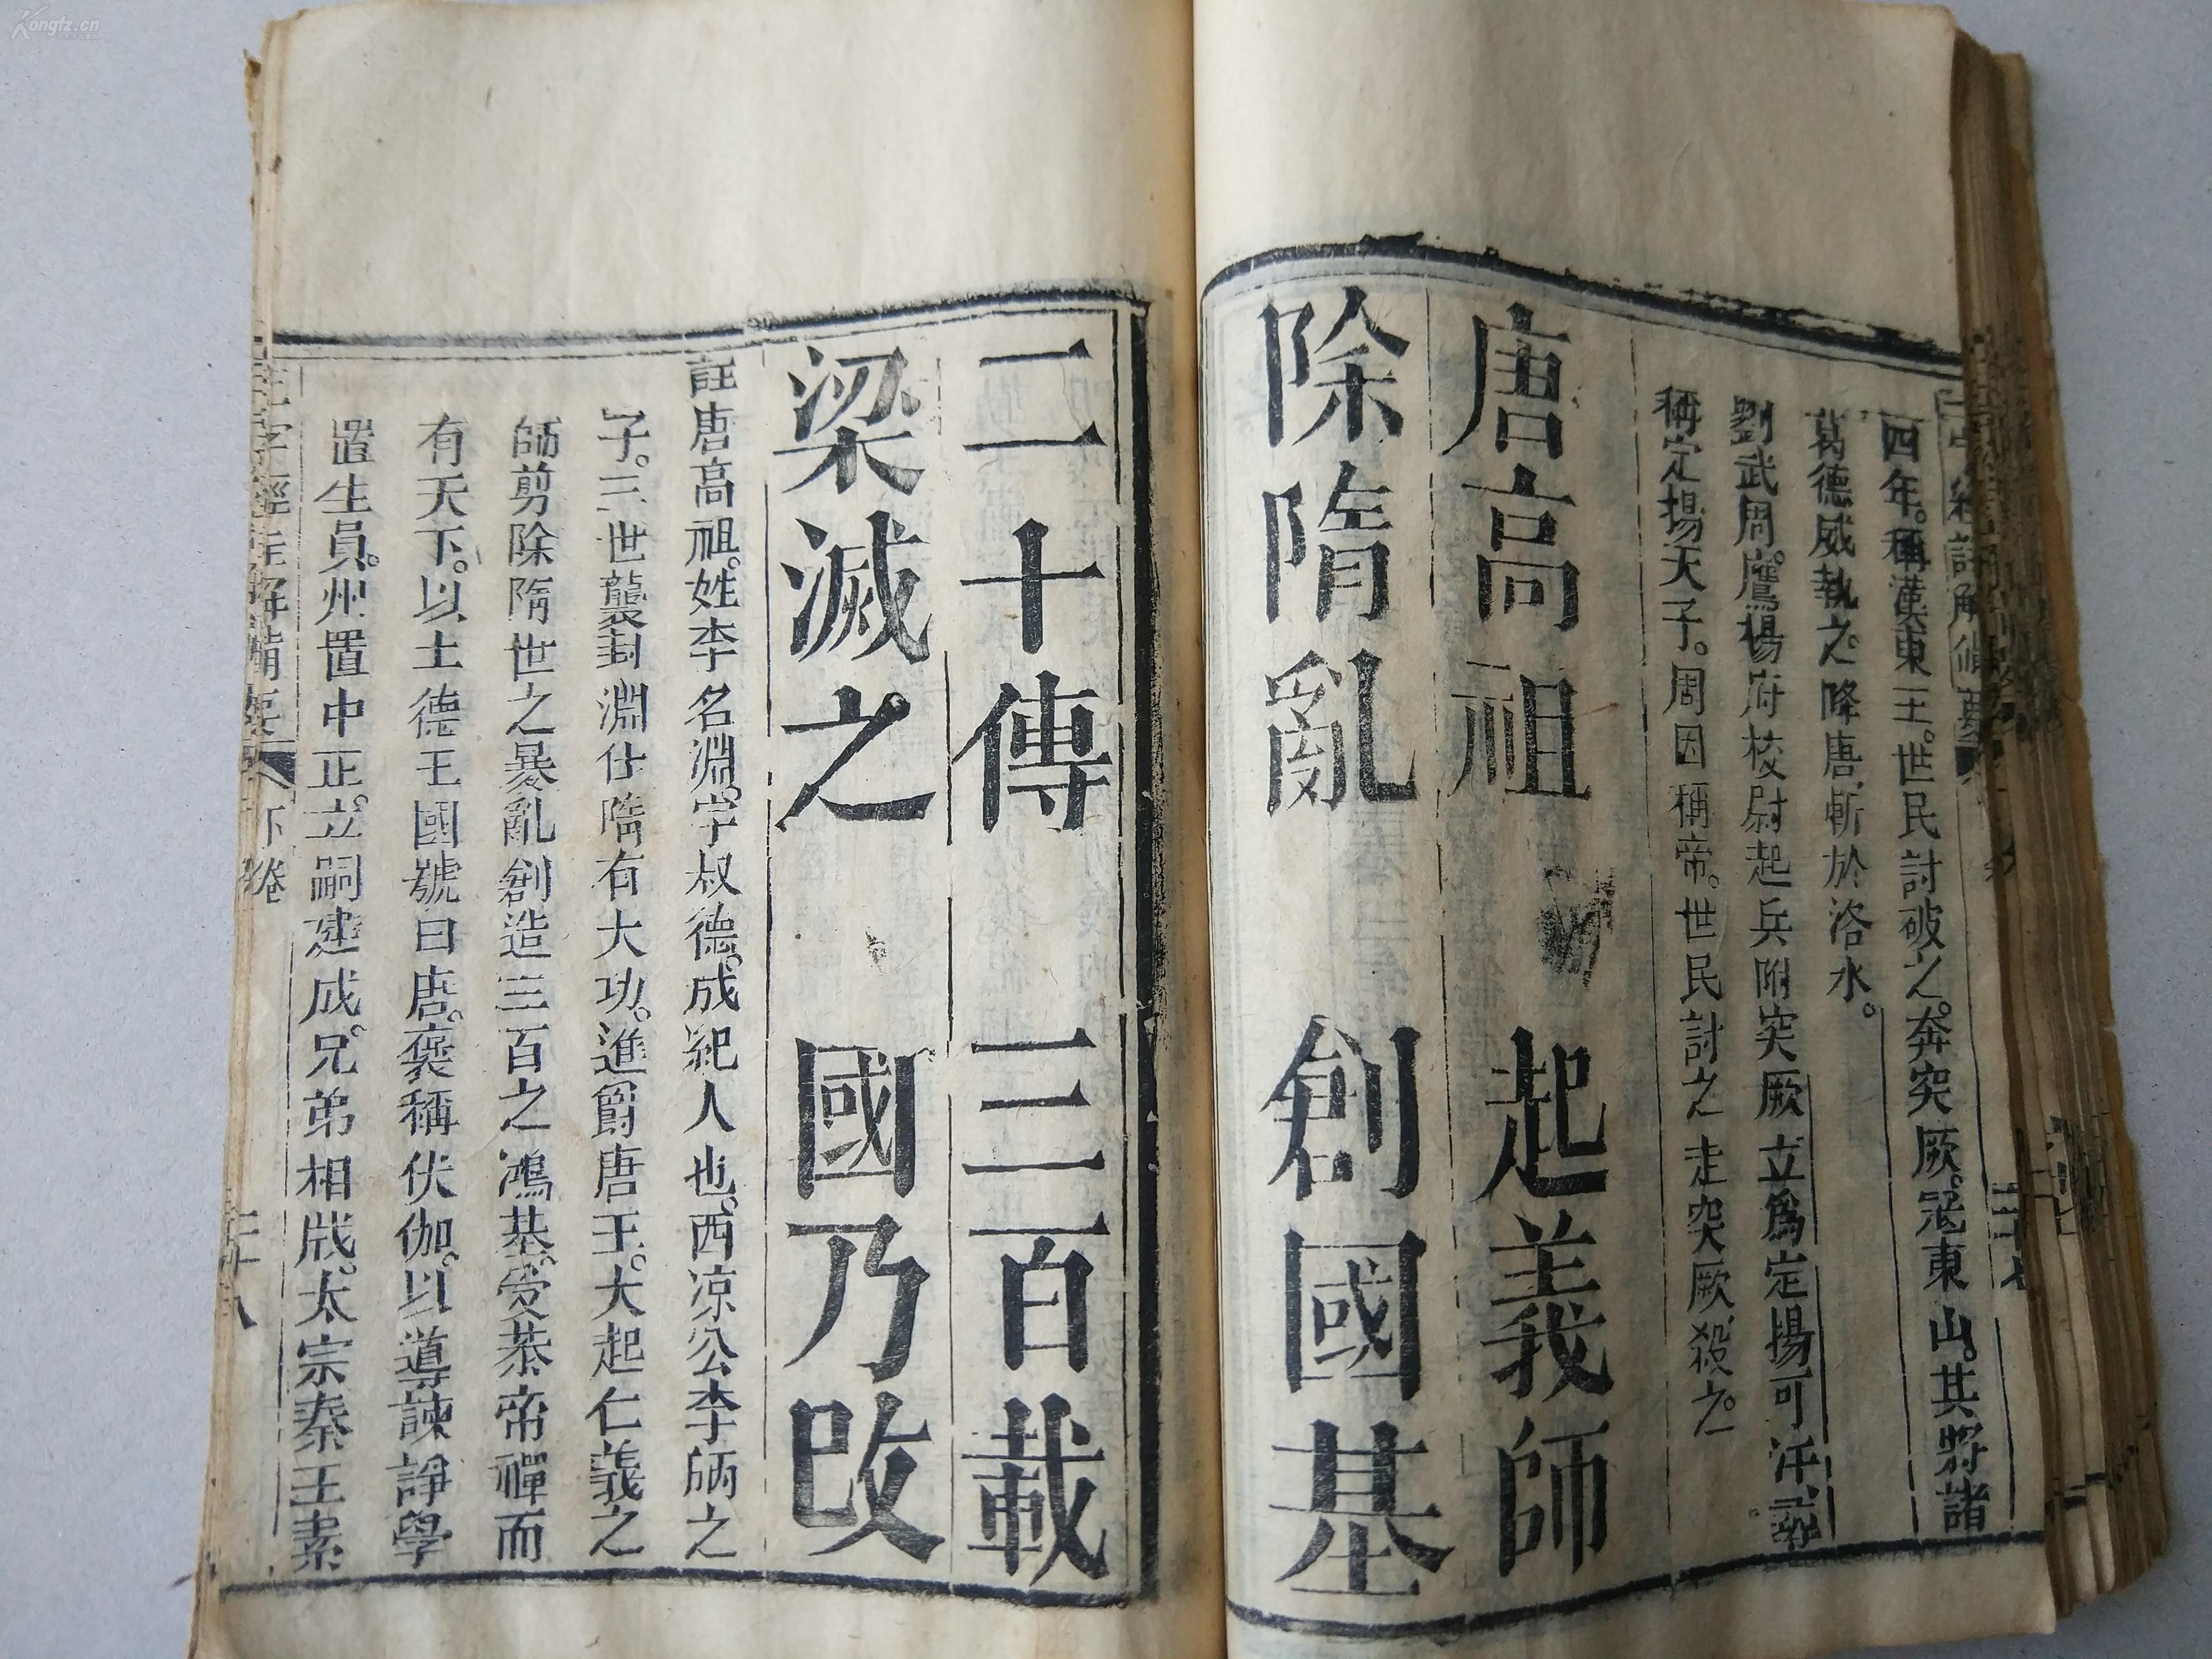 四年。稱漢東王。世民討破之。奔突厥。冦東山。其將諸
葛德威執之。降唐斬於洛水。
劉武周。鷹揚府校尉起兵附突厥立爲定揚可汗。尋
稱定揚天子。周因稱帝。世民討之走突厥殺之。
唐高祖 起義師
除隋亂 創國基
二十傳 三百載
梁滅之 國乃改
註唐高祖。姓李名淵。字叔德。成紀人也。西凉公李昞之
子。三世襲封淵仕隋有大功。進爵唐王。大起仁義之
師剪除隋世之暴亂創造三百之鴻基。受恭帝禪而
有天下。以土德王國號曰唐。褒稱伏伽。以導諫諍學
置生員。州置中正。立嗣建成。兄弟相戕。太宗秦王素
三字經註解備要 下卷 二十八
Kongfz.cn